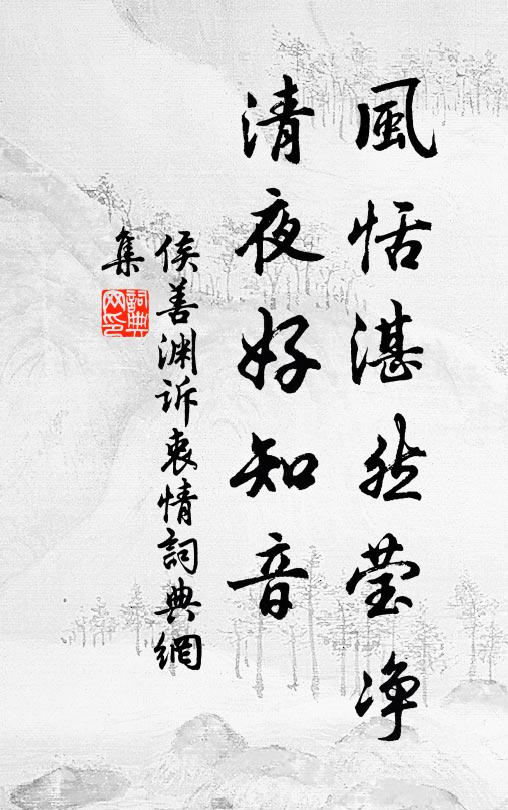 風恬湛然莹净
清夜好知音
侯善渊诉衷情詞典網
集
詞典
网印